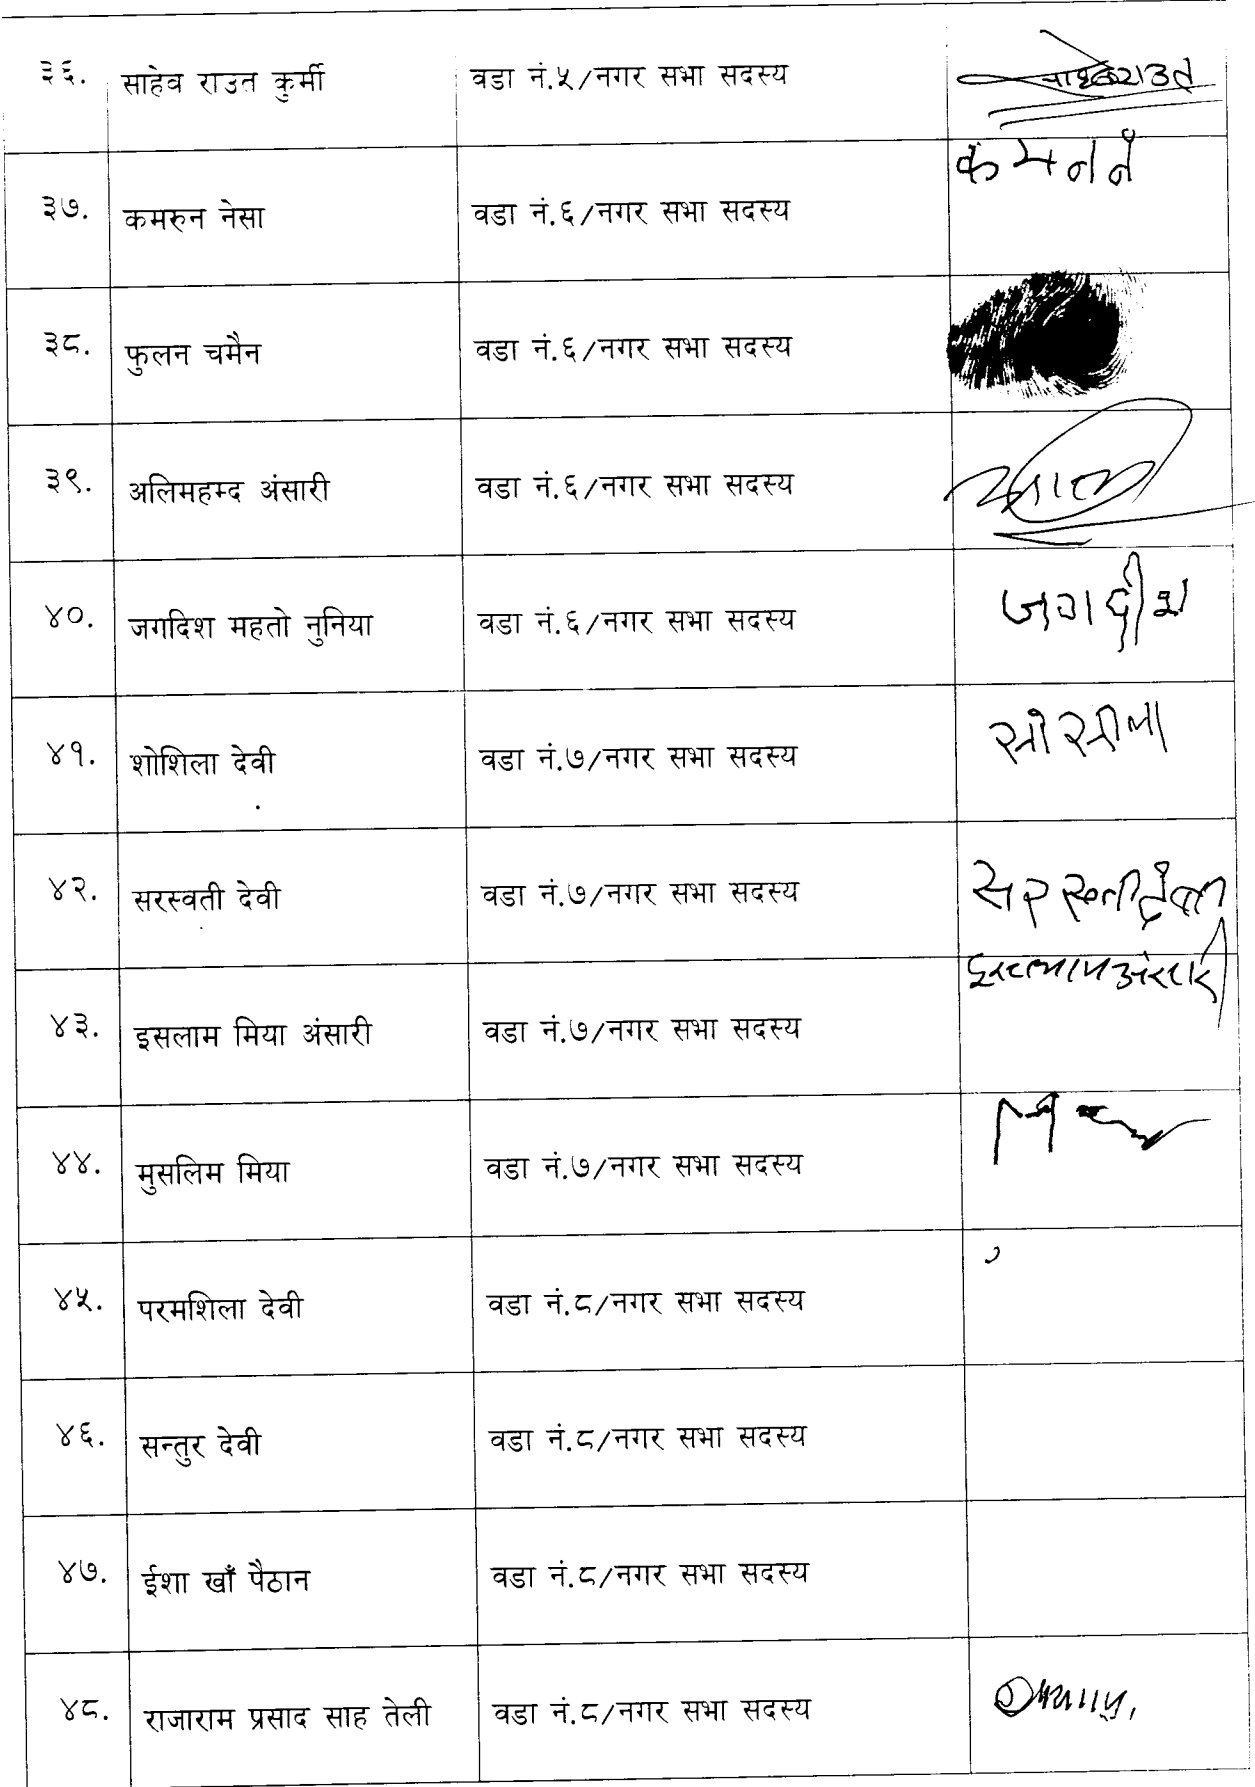 ३६. साहेव राउत कुर्मी वडा नं.५/नगर सभा सदस्य
३७. कमरुन नेसा वडा नं.६/नगर सभा सदस्य
३८. फुलन चमैन वडा नं.६/नगर सभा सदस्य
३९. अलिमहम्द अंसारी वडा नं.६/नगर सभा सदस्य
४०. जगदिश महतो नुनिया वडा नं.६/नगर सभा सदस्य जगदीश
४१. शोशिला देवी वडा नं.७/नगर सभा सदस्य
४२. सरस्वती देवी वडा नं.७/नगर सभा सदस्य
४३. इसलाम मिया अंसारी वडा नं.७/नगर सभा सदस्य
४४. मुसलिम मिया वडा नं.७/नगर सभा सदस्य
४५. परमशिला देवी वडा नं.८/नगर सभा सदस्य
४६. सन्तुर देवी वडा नं.८/नगर सभा सदस्य
४७. ईशा खाँ पैठान वडा नं.८/नगर सभा सदस्य
४८. राजाराम प्रसाद साह तेली वडा नं.८/नगर सभा सदस्य